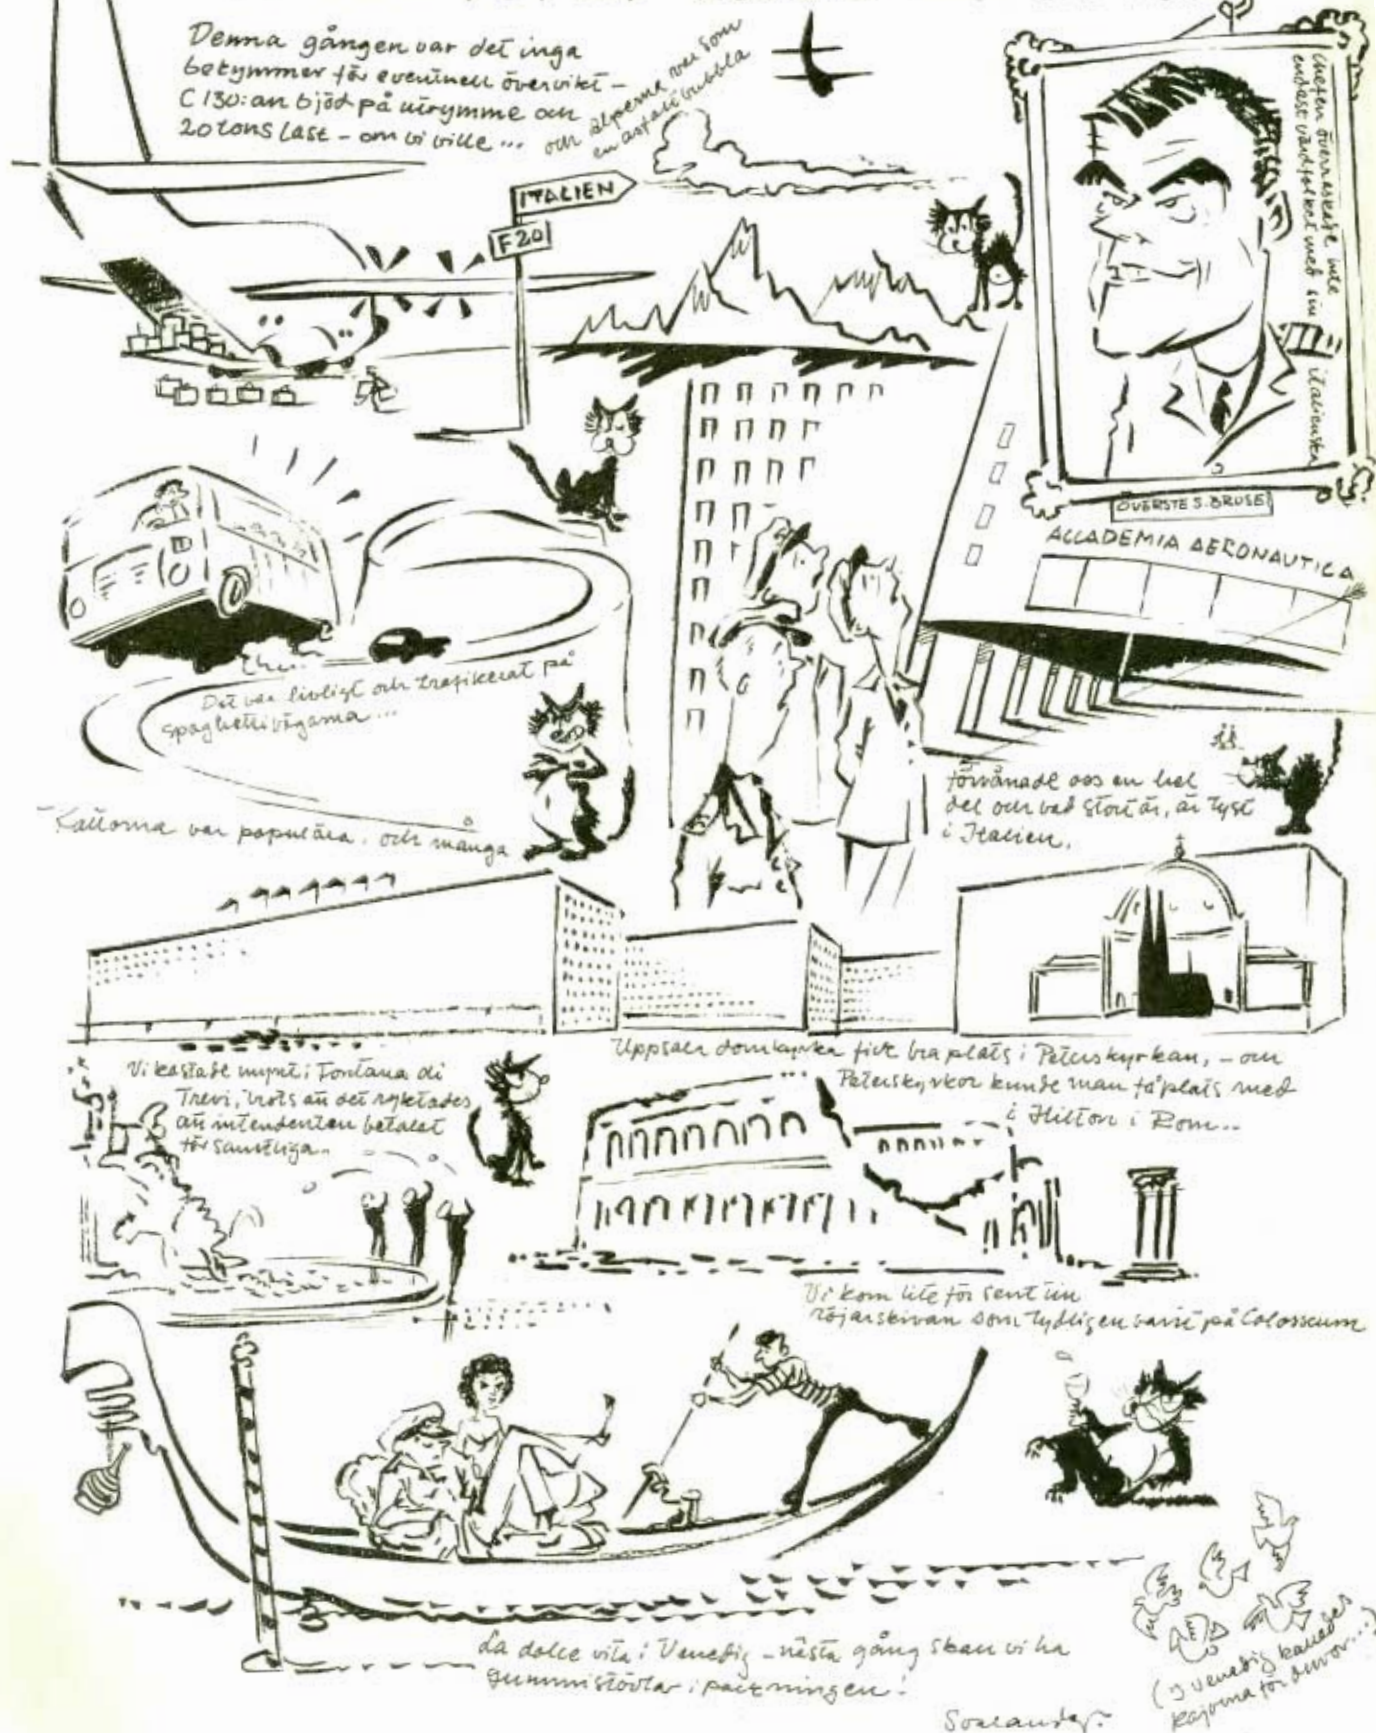 Denna gången var det inga
bekymmer för eventuell övervikt –
C 130:an bjöd på utrymme och
20 tons last – om vi ville ...
och alperna var som
en asfaltbubbla
ITALIEN
F20
chefen överraskade inte
endast värdfolket med sin italienska
ÖVERSTE S. BRUSE
ACCADEMIA AERONAUTICA
Det var livligt och trafikerat på
spaghettivägarna ...
Katterna var populära, och många
förvånade oss en hel
del och vad stort är, är tyst
i Italien.
Uppsala domkyrka fick bra plats i Peterskyrkan, – och
Peterskyrkor kunde man få plats med
i Hilton i Rom...
Vi kastade mynt i Fontana di
Trevi, trots att det ryktades
att intendenten betalat
för samtliga..
Vi kom lite för sent till
röjarskivan som tydligen varit på Colosseum
La dolce vita i Venedig – nästa gång skall vi ha
gummistövlar i packningen!
(I Venedig kallades
kajorna för duvor...)